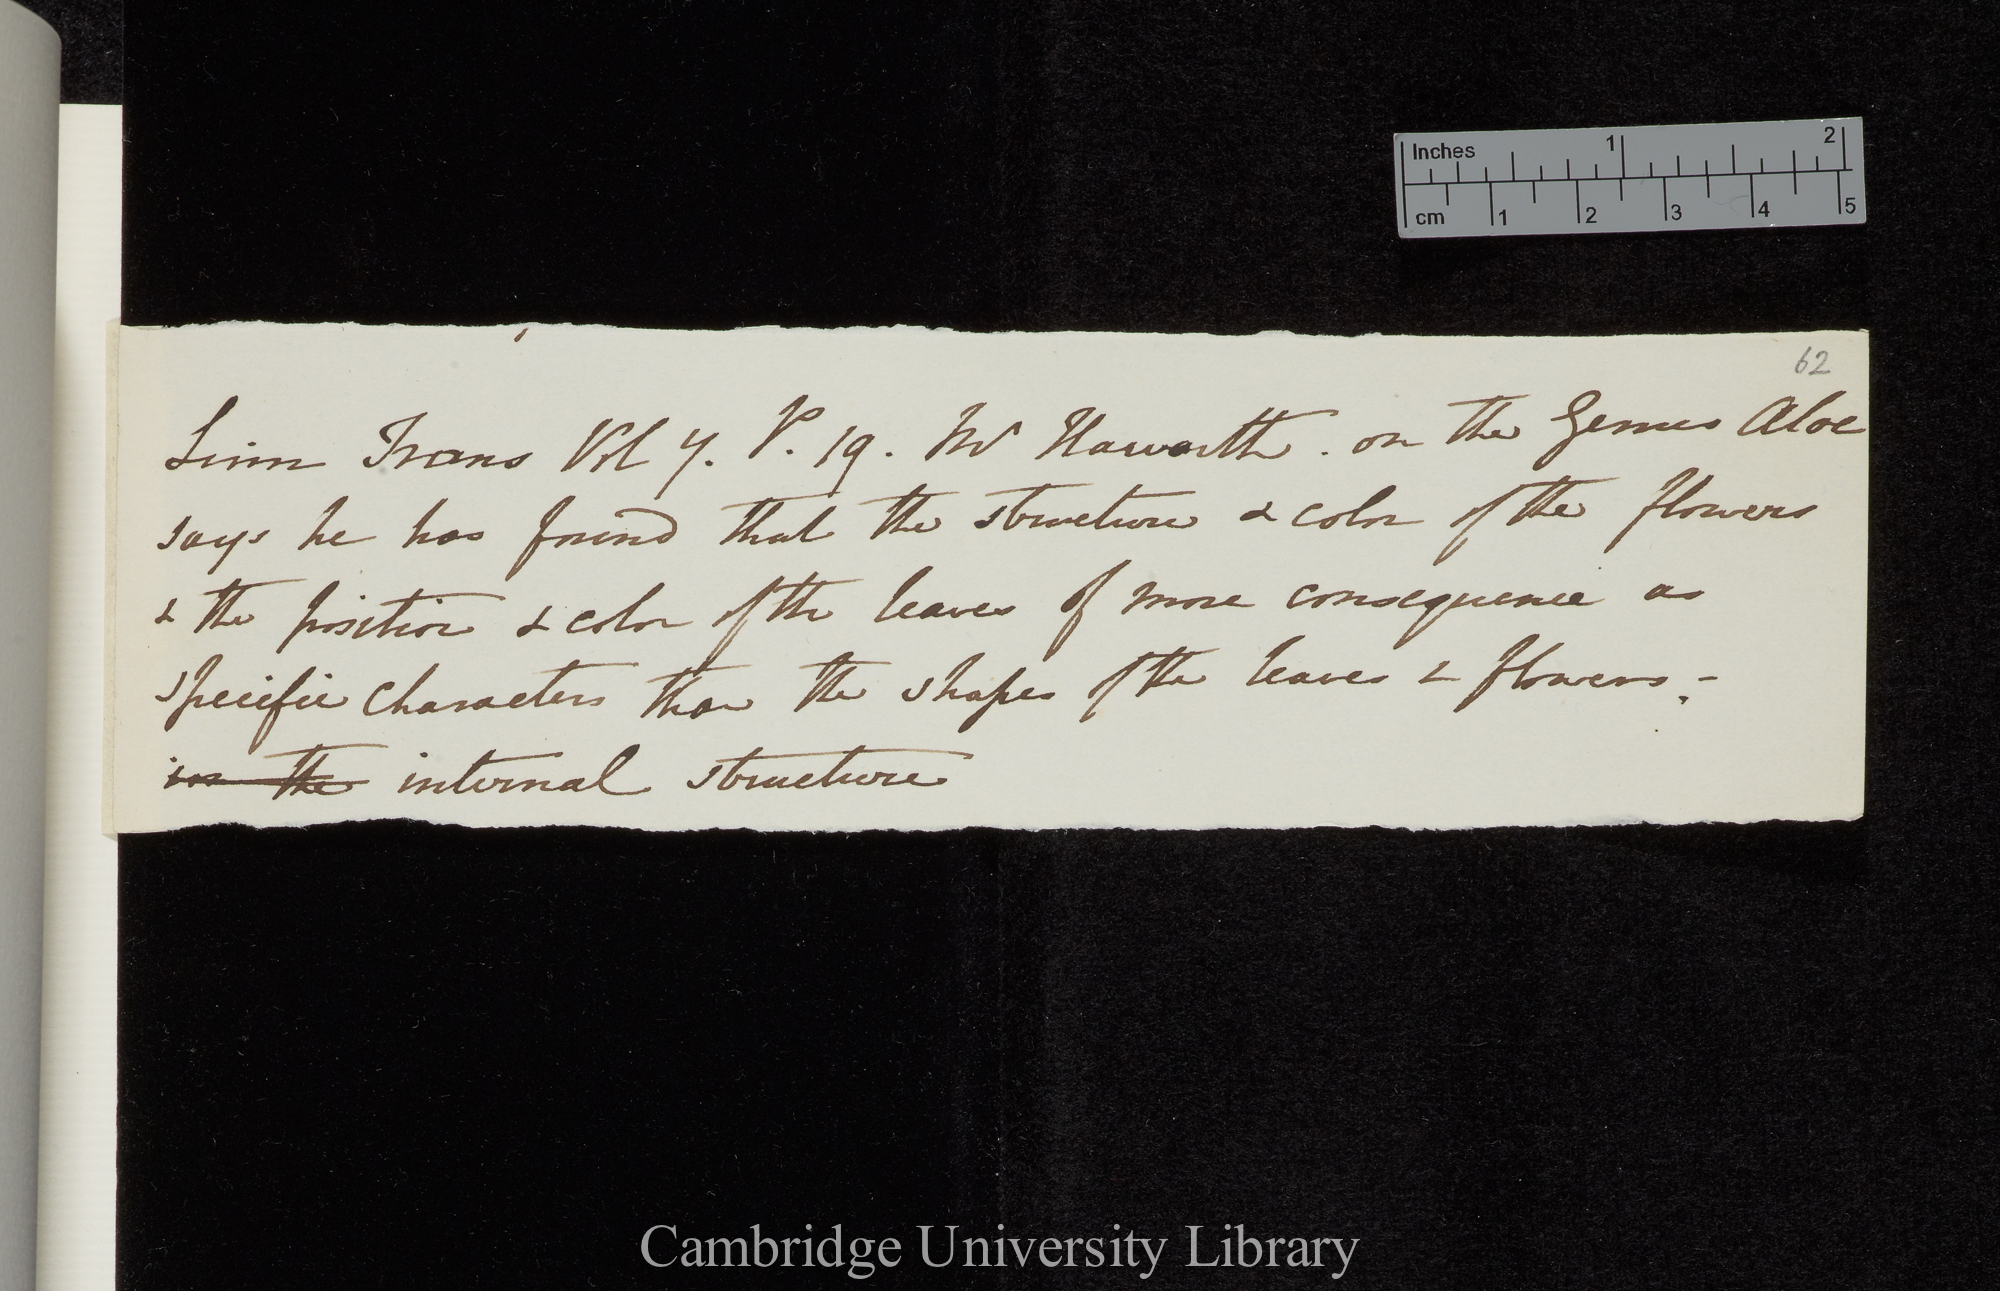 Inches 1 2
cm 1 2 3 4 5
62
Linn Trans Vol 7. P. 19. Mr Haworth. on the Genus Aloe
says he has found that the structure & color of the flowers
& the position & color of the leaves of more consequence as
specific characters than the shapes of the leaves & flowers.–
the internal structure
Cambridge University Library